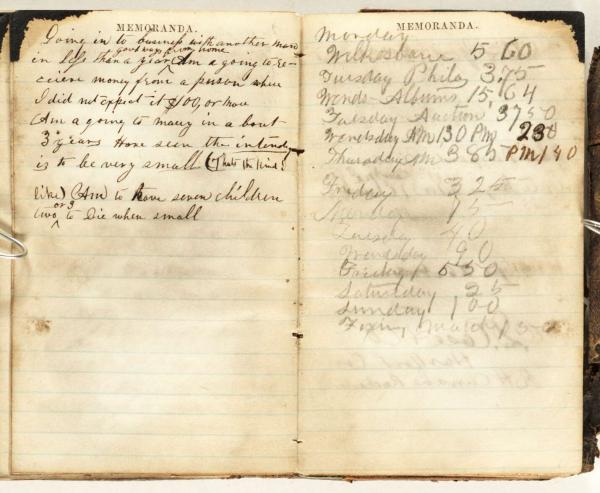 MEMORANDA.
Going in to business with another man
good ways from home
in less than a year Am a going to re-
cieve money from a person where
I did not expect it $100, or more
Am a going to marry in a bout
3 years Have seen the intended
is to be very small (Just the kind I
like) (Am) to have seven children
or 3
two to Die when small
MEMORANDA.
Monday
Wilkesbarie 5 60
Tuesday Phila 3.75
Wends- Albums 15,64
Tuesday Auction 37 50
Wendsday AM 1 30 PM 230
Thursday AM 3 85 PM 1 40
Friday 3 25
Monday 15
Tuesday 40
Wendsday 90
Friday 5 50
Saturday 25
Sunday 1 00